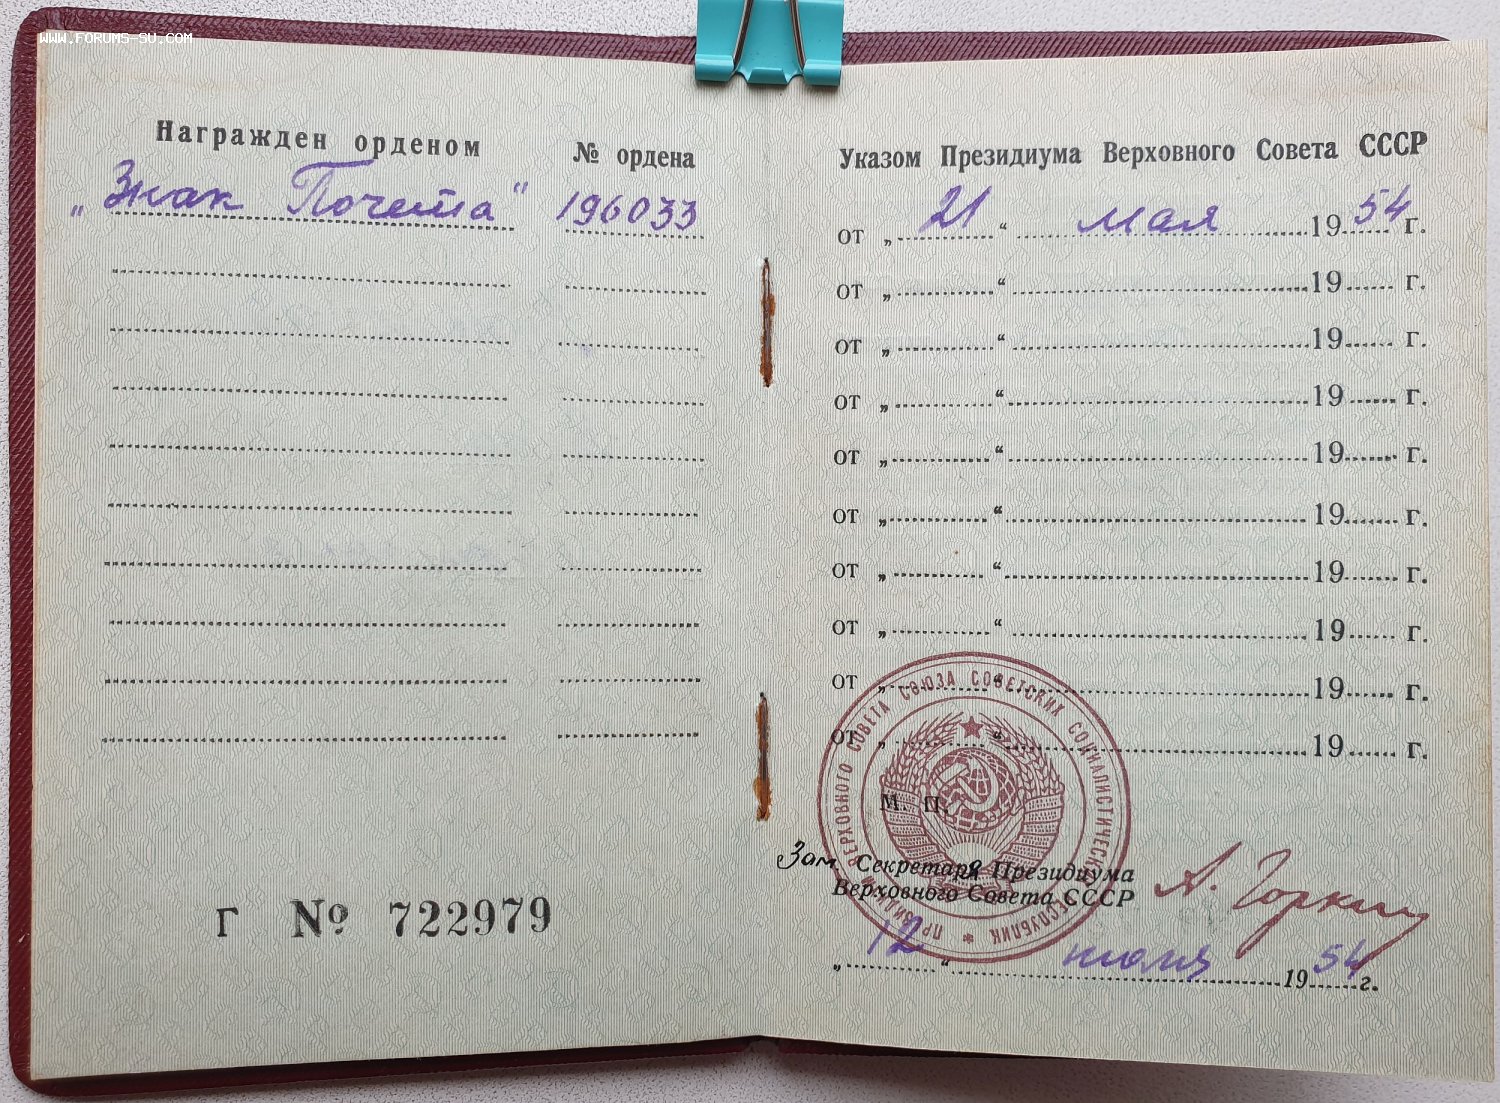 WWW.FORUMS-SU.COM
Награжден орденом
№ ордена
„Знак Почета“
196033
Г № 722979
Указом Президиума Верховного Совета СССР
от „21“ мая 1954 г.
от „ “ 19 г.
от „ “ 19 г.
от „ “ 19 г.
от „ “ 19 г.
от „ “ 19 г.
от „ “ 19 г.
от „ “ 19 г.
от „ “ 19 г.
от „ “ 19 г.
ПРЕЗИДИУМ ВЕРХОВНОГО СОВЕТА СОЮЗА СОВЕТСКИХ СОЦИАЛИСТИЧЕСКИХ РЕСПУБЛИК
М. П.
Зам. Секретаря Президиума
Верховного Совета СССР
А. Горкин
„12“ июля 1954 г.